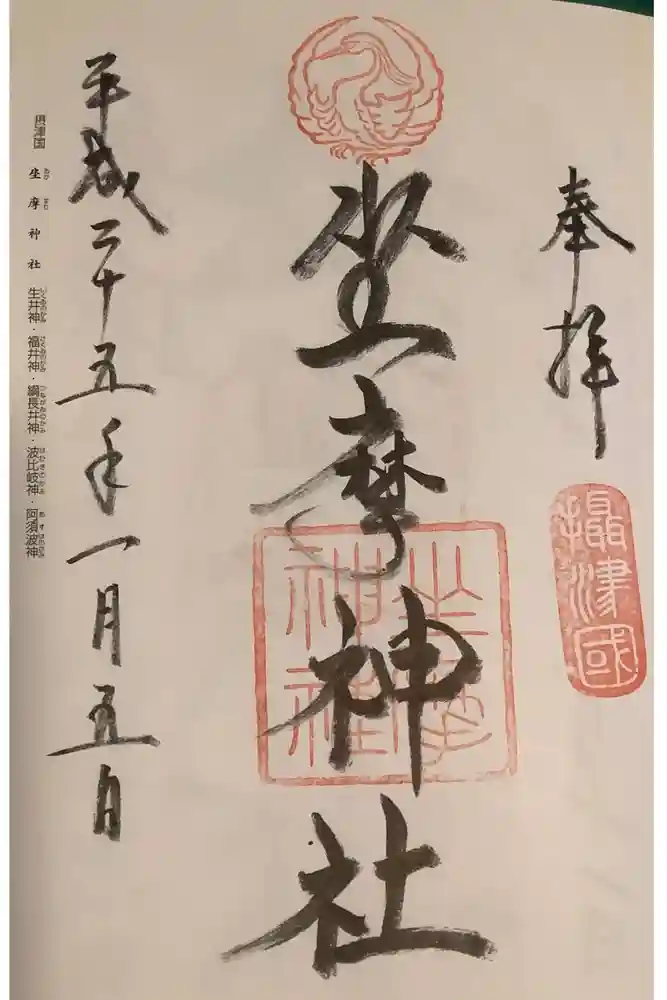 奉拝
攝津國
坐摩神社
坐摩神社
平成二十五年一月五日
摂津国 坐摩神社 生井神・福井神・綱長井神・波比岐神・阿須波神